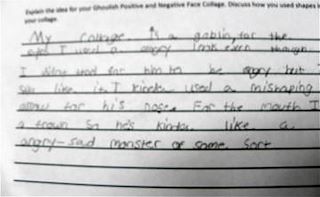 Explain the idea for your Ghoulish Positive and Negative Face Collage. Discuss how you used shapes in
your collage.
My collage is a goblin, for the
eyes I used a angry look even though
I didnt want for him to be angry but I
like it, I kinda used a mishaping
arrow for his nose. For the mouth I
a frown so he's kinda like a
angry-sad monster of some sort